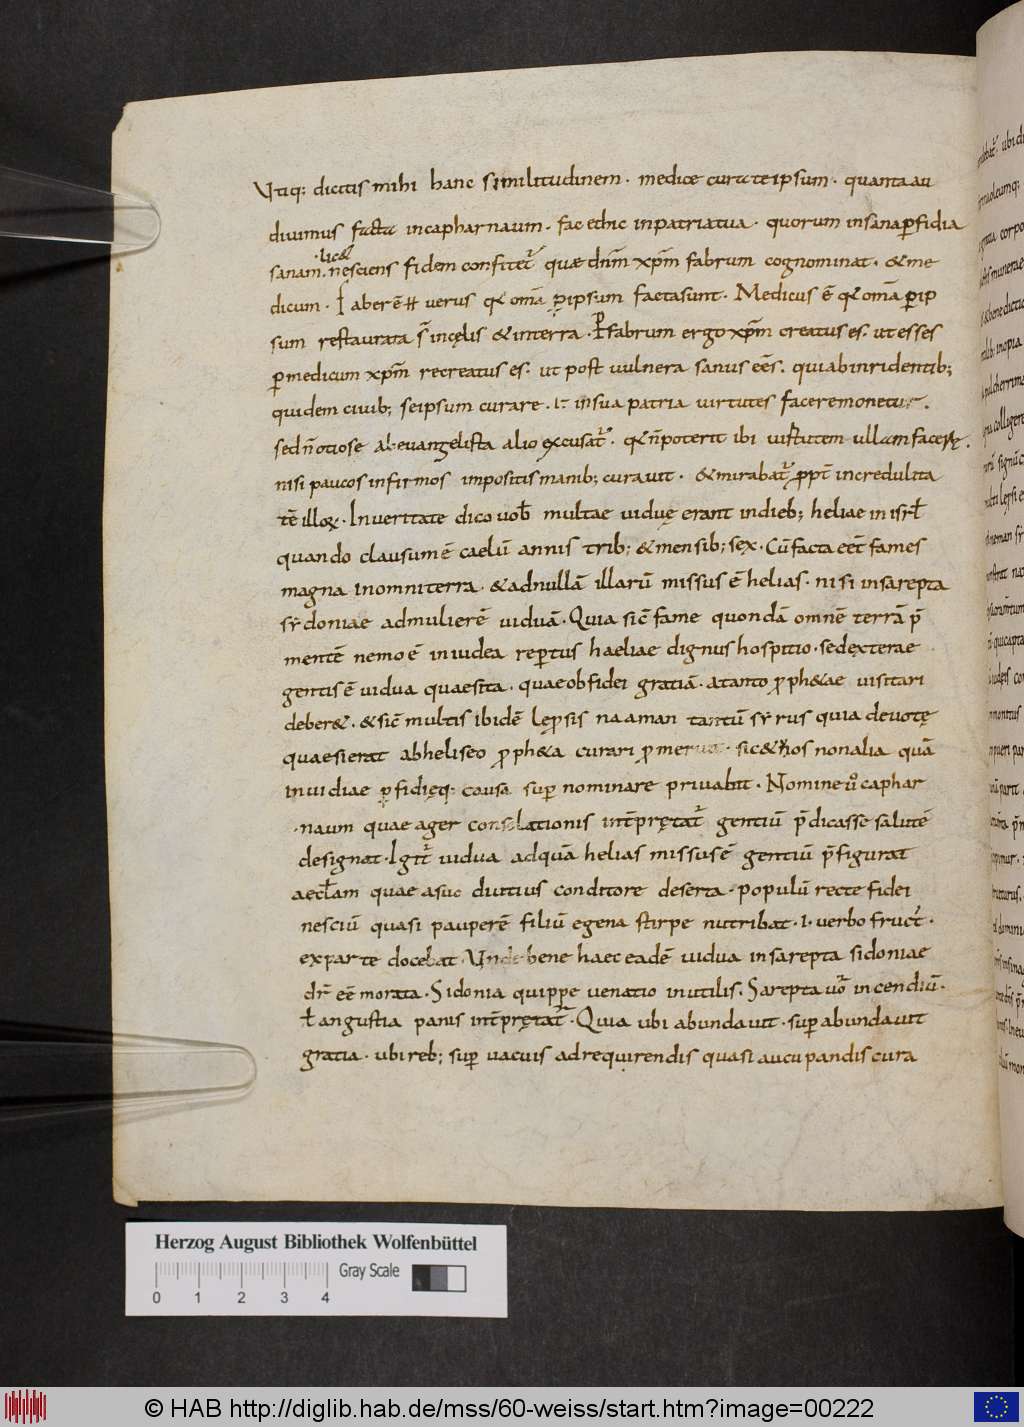 Utiq; dicitis mihi hanc similitudinem · medice cura teipsum · quanta au
diuimus facta incapharnaum · fac ethic inpatriatua · quorum insanaꝑfidia
·lic&
sanam · nesciens fidem confitet᷑ quae dnm̄ xpm̄ fabrum cognominat · & me
dicum · verus omā ꝑipsum factasunt · Medicus ē omā ꝑip
sum restaurata s̄ incęlis & interra · fabrum ergo xpm̄ creatus es · ut esses
ꝑmedicum xpm̄ recreatus es · ut post uulnera sanus eēs · quiabinridentib;
quidem ciuib; seipsum curare · insua patria uirtutes faceremonetur ·
sedn̄ otiose abeuangelista alio excusat᷑ · n̄poterit ibi uirtutem ullam facere ·
nisi paucos infirmos impositis manib; curauit · & mirabat᷑ ꝓpt̄ incredulita
tē illoꝝ · Inueritate dico uob̄ multae uiduę erant indieb; heliae in isrl̄
quando clausum ē caelū annis trib; & mensib; sex · Cū facta eēt fames
magna inomniterra · & adnullā illarū missus ē helias · nisi insarepta
sydoniae admulierē uiduā · Quia sic̄ fame quondā omnē terrā p̄
mentē nemo ē iniudea reꝑtus haeliae dignus hospitio · sedexterae
gentis ē uidua quaesita · quaeobfidei gratiā · atanto ꝓph&ae uisitari
deber& · & sic̄ multis ibidē lepsis naaman tantū syrus quia deuotę
quaesierat abheliseo ꝓph&a curari ꝓmeruit · sic & hos nonalia quā
inuidiae ꝑfidięq; causa suꝑ nominare priuabit · Nomine u͛o caphar
naum quae ager consolationis int̄prętat᷑ gentiū p̄dicasse salutē
designat · Igit᷑ uidua adquā helias missus ē gentiū p̄figurat
aeccl̄am quae asuo diutius conditore deserta · populū recte fidei
nesciū quasi pauperē filiū egena stirpe nutribat · i · uerbo fruct᷑ ·
exparte docebat · Unde bene haec eadē uidua insarepta sidoniae
dr̄ eē morata · Sidonia quippe uenatio inutilis · Sarepta u͛o incendiū ·
ł angustia panis int̄prętat᷑ · Quia ubi abundauit · suꝑabundauit
gratia · ubi reb; suꝑuacuis adrequirendis quasi aucupandis cura
Herzog August Bibliothek Wolfenbüttel
Gray Scale
0 1 2 3 4
© HAB http://diglib.hab.de/mss/60-weiss/start.htm?image=00222